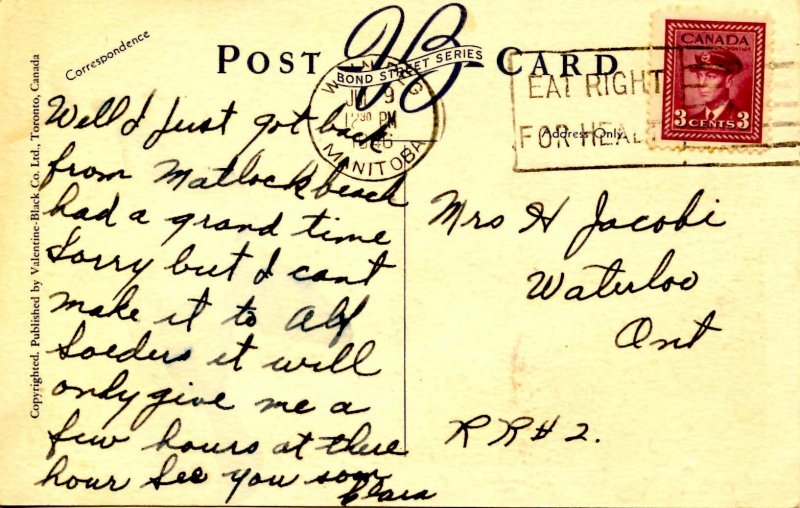 Correspondence
POST CARD
BOND STREET SERIES
WINNIPEG
9
12 30 PM
1946
MANITOBA
EAT RIGHT
FOR HEAL
Address Only
CANADA
POSTES POSTAGE
3 CENTS 3
Copyrighted. Published by Valentine-Black Co. Ltd., Toronto, Canada
Well I just got back
from Matlock beach
had a grand time
Sorry but I cant
make it to Alf
Soeders it will
only give me a
few hours at there
hour See you soon
Clara
Mrs H Jacobi
Waterloo
Ont
RR#2.